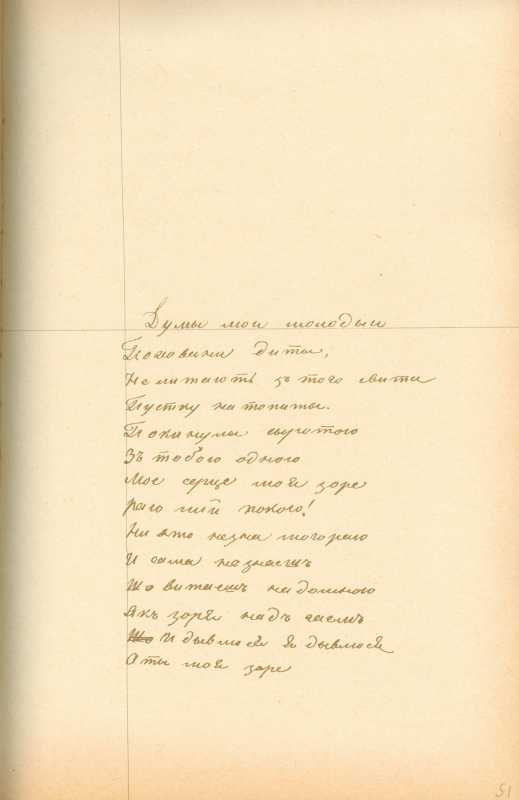 Думы мои молодыи
Понавики диты,
Не литають зъ того свита
Пустку натопыты.
Покинулы сыротою
Зъ тобою одного
Мое серце моя зоре
раю мій покою!
Ни хто незна того раю
И сама незнаешъ
Що витаешъ надомною
Якъ зоря надъ гаемъ
И дывлюся я дывлюся
А ты моя зоре
51